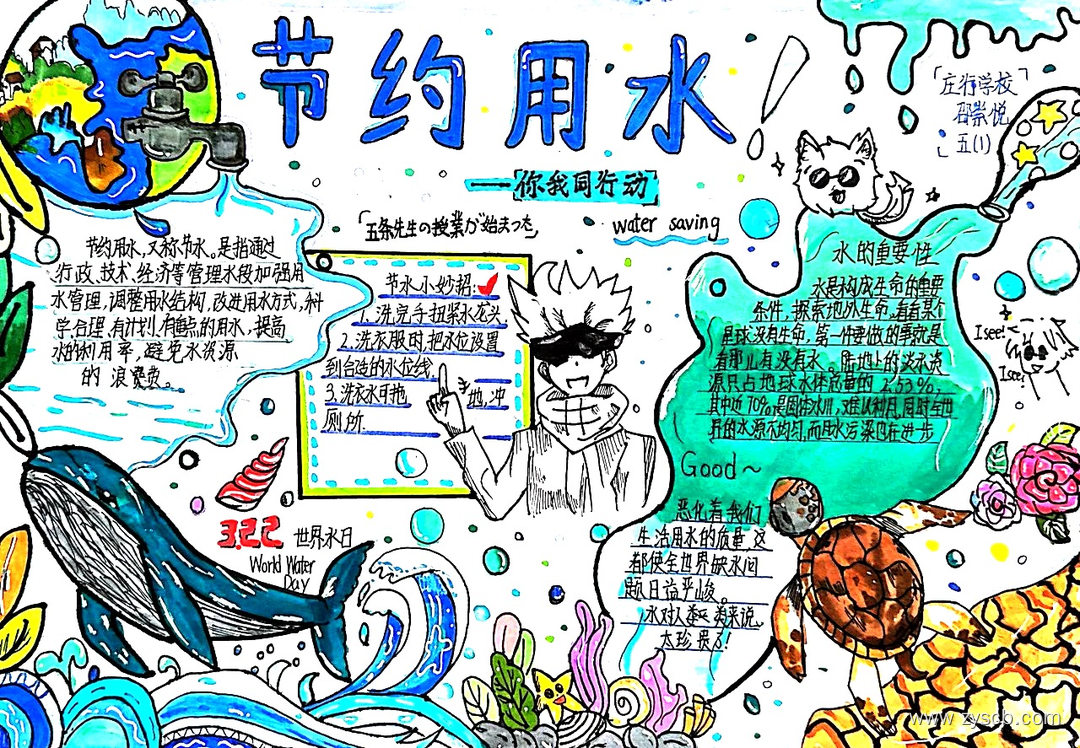 节约用水
——你我同行动
庄行学校
邵崇悦
五(1)
「五条先生の授業が始まった」
water saving
节约用水,又称节水。是指通过
行政、技术、经济等管理水段加强用
水管理,调整用水结构,改进用水方式,科
学合理、有计划、有重点的用水,提高
水的利用率,避免水资源
的浪费费。
节水小妙招:
1.洗完手扭紧水龙头
2.洗衣服时,把水位设置
到合适的水位线
3.洗衣水可拖地,冲
厕所.
水的重要性
水是构成生命的重要
条件,探索地外生命,看看某个
星球没有生命,第一件要做的事就是
看那儿有没有水。陆地上的淡水资
源只占地球水体总量的2.53%,
其中近70%是固体冰川,难以利用,同时全世
界的水源不均匀,而且水污染也在进步
恶化着我们
生活用水的质量 这
都使全世界缺水问
题日益严峻。
水对人类来说,
太珍贵了!
Good~
Isee!
Isee!
3.22 世界水日
World Water
Day
www.zyscb.com